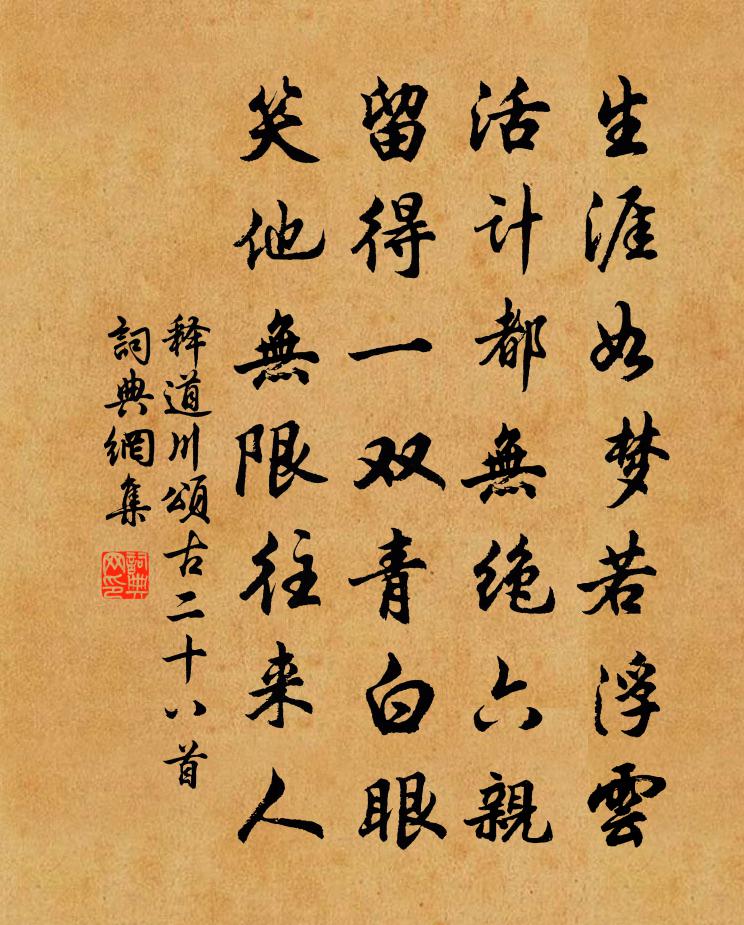 生涯如梦若浮雲
活计都無绝六親
留得一双青白眼
笑他無限往来人
释道川頌古二十八首
詞典網集
詞典网印